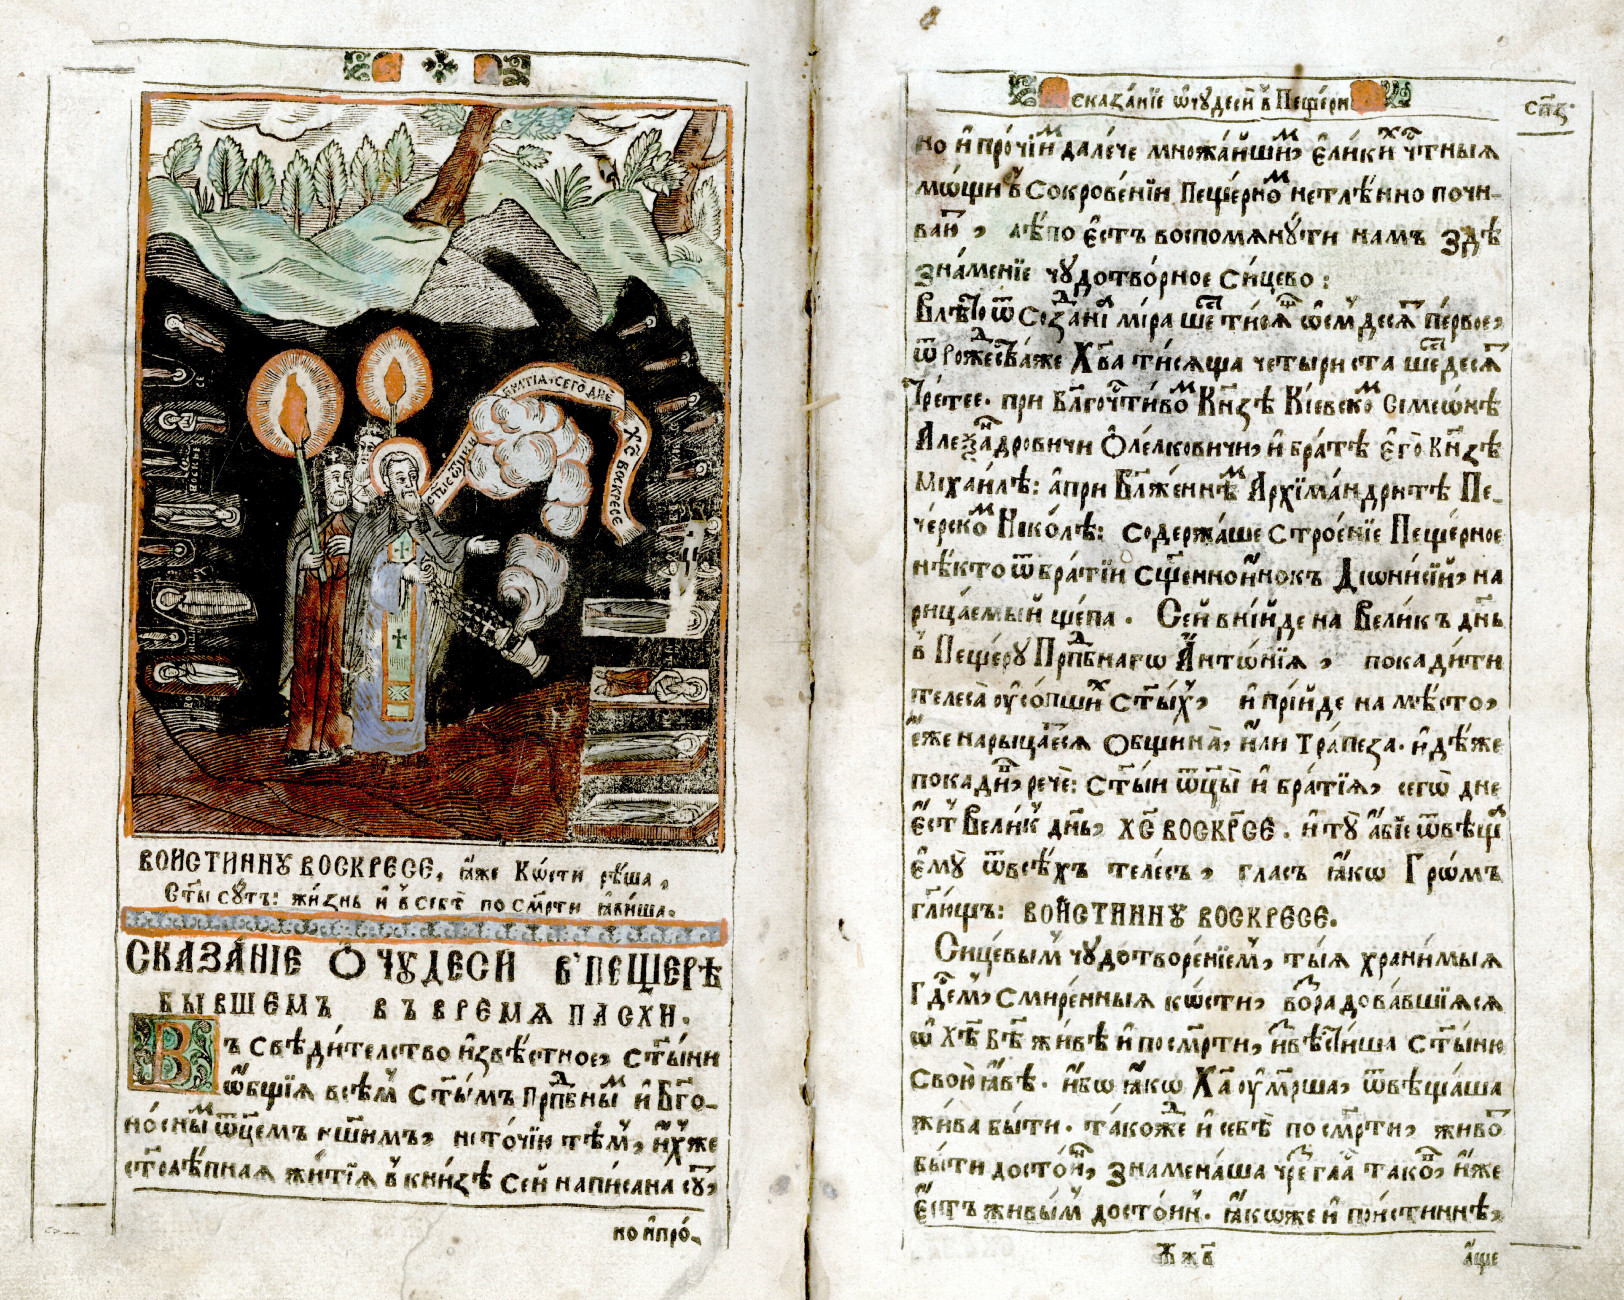 СТЫИ ѠЦИ И
БРАТІА, СЕГО ДНЕ
ХС ВОСКРЕСЕ
ВОИСТИННУ ВОСКРЕСЕ, ꙗже Кѡсти рѣша,
Ст҃ы сꙋть: жизнь и҆ в̾ себѣ по см҃рти ꙗвиша.
СКАЗАНІЕ Ѻ ЧꙊДЕСИ В' ПЕЩЕРѢ
БЫВШЕМЪ ВЪ ВРЕМѦ ПАСХИ.
Въ свѣдителство и҆звѣстное, ст҃ыни
ѡ҆бщїѧ всѣм ст҃ымъ прпⷣбнымⷨ и҆ Бг҃о-
но́сныⷨ ѿц҃емъ н҃шимъ, не то́чїю тѣ́м, и҆́хже
ст҃олѣ́пнаѧ жи́тїѧ в̾ кни́зѣ сей напи́сана сꙋ́т,
но и҆ про́-
Сказа́нїе ѡ҆ чꙋдеси̑ в̾ Пеще́ри
сп҃в
но и҆ про́чїиⷨ дале́че множа́йшиⷨ, є҆ли́киⷯ чⷭ҇тныѧ
мѡ́щи в̾ сокрове́нїи пеще́рноⷨ нетлѣ́нно почи-
ваю̑т, лѣ́по є҆́стъ воспомѧнꙋ́ти намъ здѣ̀
зна́менїе чꙋдотво́рное си́цево:
Влѣ́то ѿ созⷣа́нїѧ мі́ра шестьти́сѧⷱ ѡсмⸯдесѧ́т пе́рвое,
ѿ рожⷭества́ же Хв҃а ти́сѧща четы́риста шестⸯдесѧ́т
тре́тее. при Бл҃гочⷭти́воⷨ Кн҃зѣ Кі́евскоⷨ Сімеѡ́нѣ
Алеѯа́ндровичи Ѻле́лковичи, и҆ бра́тѣ є҆гѡ̀ Кн҃зѣ
Міха́илѣ: а҆ при Бл҃же́ннѣⷨ Архїма́ндритѣ Пе-
че́рскоⷨ Нїко́лѣ: содержа́ше строе́нїе Пеще́рное
нѣ́кто ѿ бра́тїи Сщ҃е́нноинокъ Дїѡни́сїй, на
рица́емый ще́па. Сей вни́йде на Вели́къ дн҃ь
в̾ Пеще́рꙋ Прпⷣбнагѡ Анто́нїѧ, покади́ти
телеса̀ оу҆со́пшиⷯ ст҃ы́х, и҆ прїи́де на мѣ́сто,
є҆́же нарыца́етсѧ Община̀, и҆ли Тра́пеза. и҆дѣ́же
покади́в, речѐ: ст҃ы́и ѿц҃ы̀ и҆ бра́тїѧ, сегѡ̀ дне
є҆́ст Вели́к дн҃ь, ХС҃ ВОСКР҃СЕ. и҆ тꙋ̀ а҆́бїе ѿвѣща̀
є҆мꙋ̀ ѿ всѣ́хъ теле́съ, гласъ ꙗ҆́кѡ Гро́мъ
гл҃ющъ: ВОИСТИННꙊ ВОСКРЕСЕ.
Си́цевым чꙋдотворе́нїем, ты́ѧ храни́мыѧ
Гдⷭ҇ем, смире́нныѧ кѡ́сти, возⷣра́довавшїѧсѧ
ѡ҆ Хⷭ҇ѣ Бз҃ѣ жи́вѣ и҆ по см҃рти, и҆звѣсти́ша ст҃ы́ню
свою̀ ꙗ҆́вѣ. и҆́бо ꙗ҆́кѡ Хⷭ҇а оу҆ме́рша, ѿвѣща́ша
жи́ва бы́ти. та́коже и҆ себѐ по см҃рти, живо́т
бы́ти досто́йн, знамена́ша чре́з гл҃а тако́в, и҆́же
є҆́стъ живы́м досто́йн. ꙗ҆́кѡже и҆ при́стиннѣ,
а҆ще